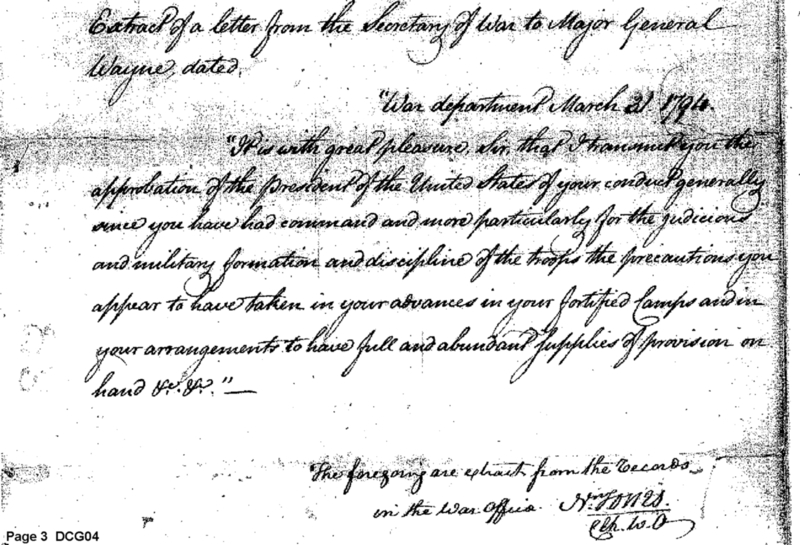 Extract of a letter from the Secretary of War to Major General
Wayne, dated,
"War department March 31 1794.
"It is with great pleasure, Sir, that I transmit you the
approbation of the president of the United States of your conduct generally
since you have had command and more particularly for the judicious
and military formation and discipline of the troops the precautions you
appear to have taken in your advances in your fortified Camps and in
your arrangements to have full and abundant supplies of provision on
hand &c. &c." —
The foregoing are extracts from the records
in the War Office. Nm Jones.
Ch. W. O
Page 3 DCG04